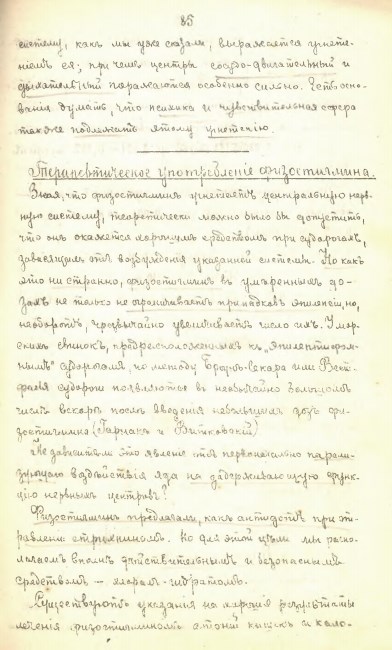 85
систему, какъ мы уже сказали, выражается угнете-
ніемъ ея; при чемъ центры сосудо-двигательный и
дыхательный поражаются особенно сильно. Есть осно-
ванія думать, что психика и чувствительная сфера
также подлежатъ этому угнетенію.
Терапевтическое употребленіе физостигмина.
Зная, что физостигминъ угнетаетъ центральную нерв-
ную систему, теоретически можно было бы допустить,
что онъ окажется хорошимъ средствомъ при судорогахъ,
зависящихъ отъ возбужденія указанной системы. Но какъ
это ни странно, физостигминъ въ умѣренныхъ до-
захъ не только не ограничиваетъ припадковъ эпилепсіи, но,
наоборотъ, чрезвычайно увеличиваетъ число ихъ. У мор-
скихъ свинокъ, предрасположенныхъ къ "эпилептифор-
нымъ" судорогамъ, по методу Броунъ-Секара или Вест-
фаля судороги появляются въ необычайно большомъ
числѣ вскорѣ послѣ введенія небольшихъ дозъ фи-
зостигмина (Гарнакъ и Витковскій)
Не зависитъ ли это явленіе отъ первоначально парали-
зующаго воздѣйствія яда на задерживающую функ-
цію нервныхъ центровъ?
Физостигминъ предлагали, какъ антидотъ при от-
равленіи стрихниномъ. Но для этой цѣли мы распо-
лагаемъ вполнѣ дѣйствительнымъ и безопаснымъ
средствомъ — хлоралъ-гидратомъ.
Существуютъ указанія на хорошіе результаты
леченія физостигминомъ атоніи кишекъ и кало-